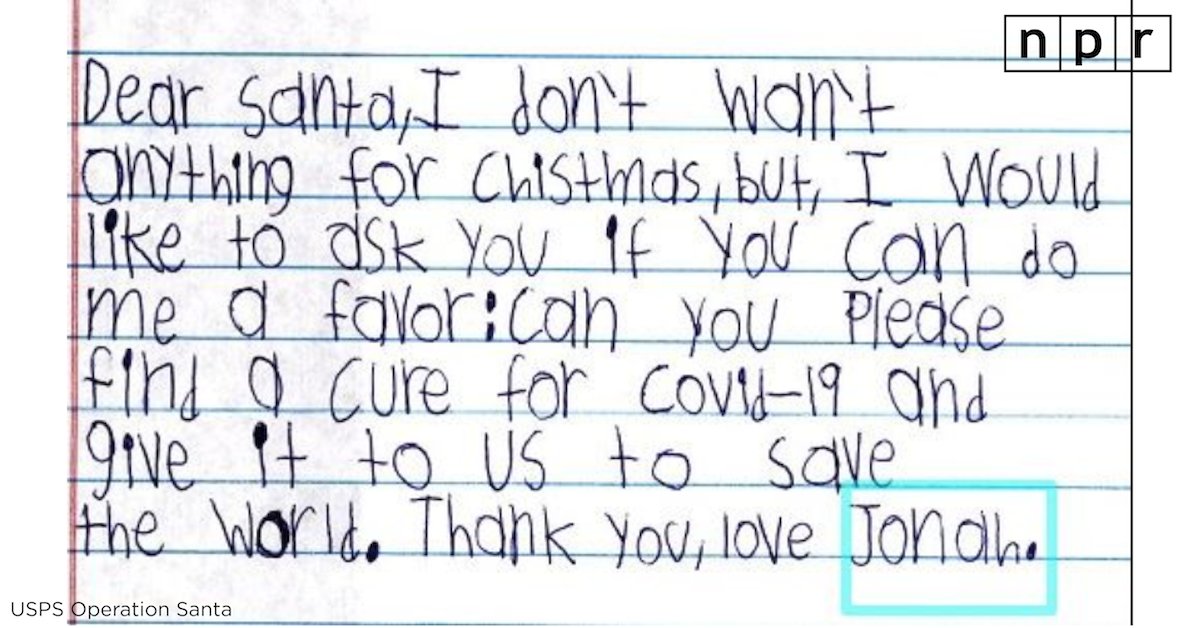 npr
Dear Santa, I don't wan't
anything for Chistmas, but, I would
like to ask you if you can do
me a favor: can you Please
find a cure for covid-19 and
give it to us to save
the world. Thank you, love Jonah.
USPS Operation Santa